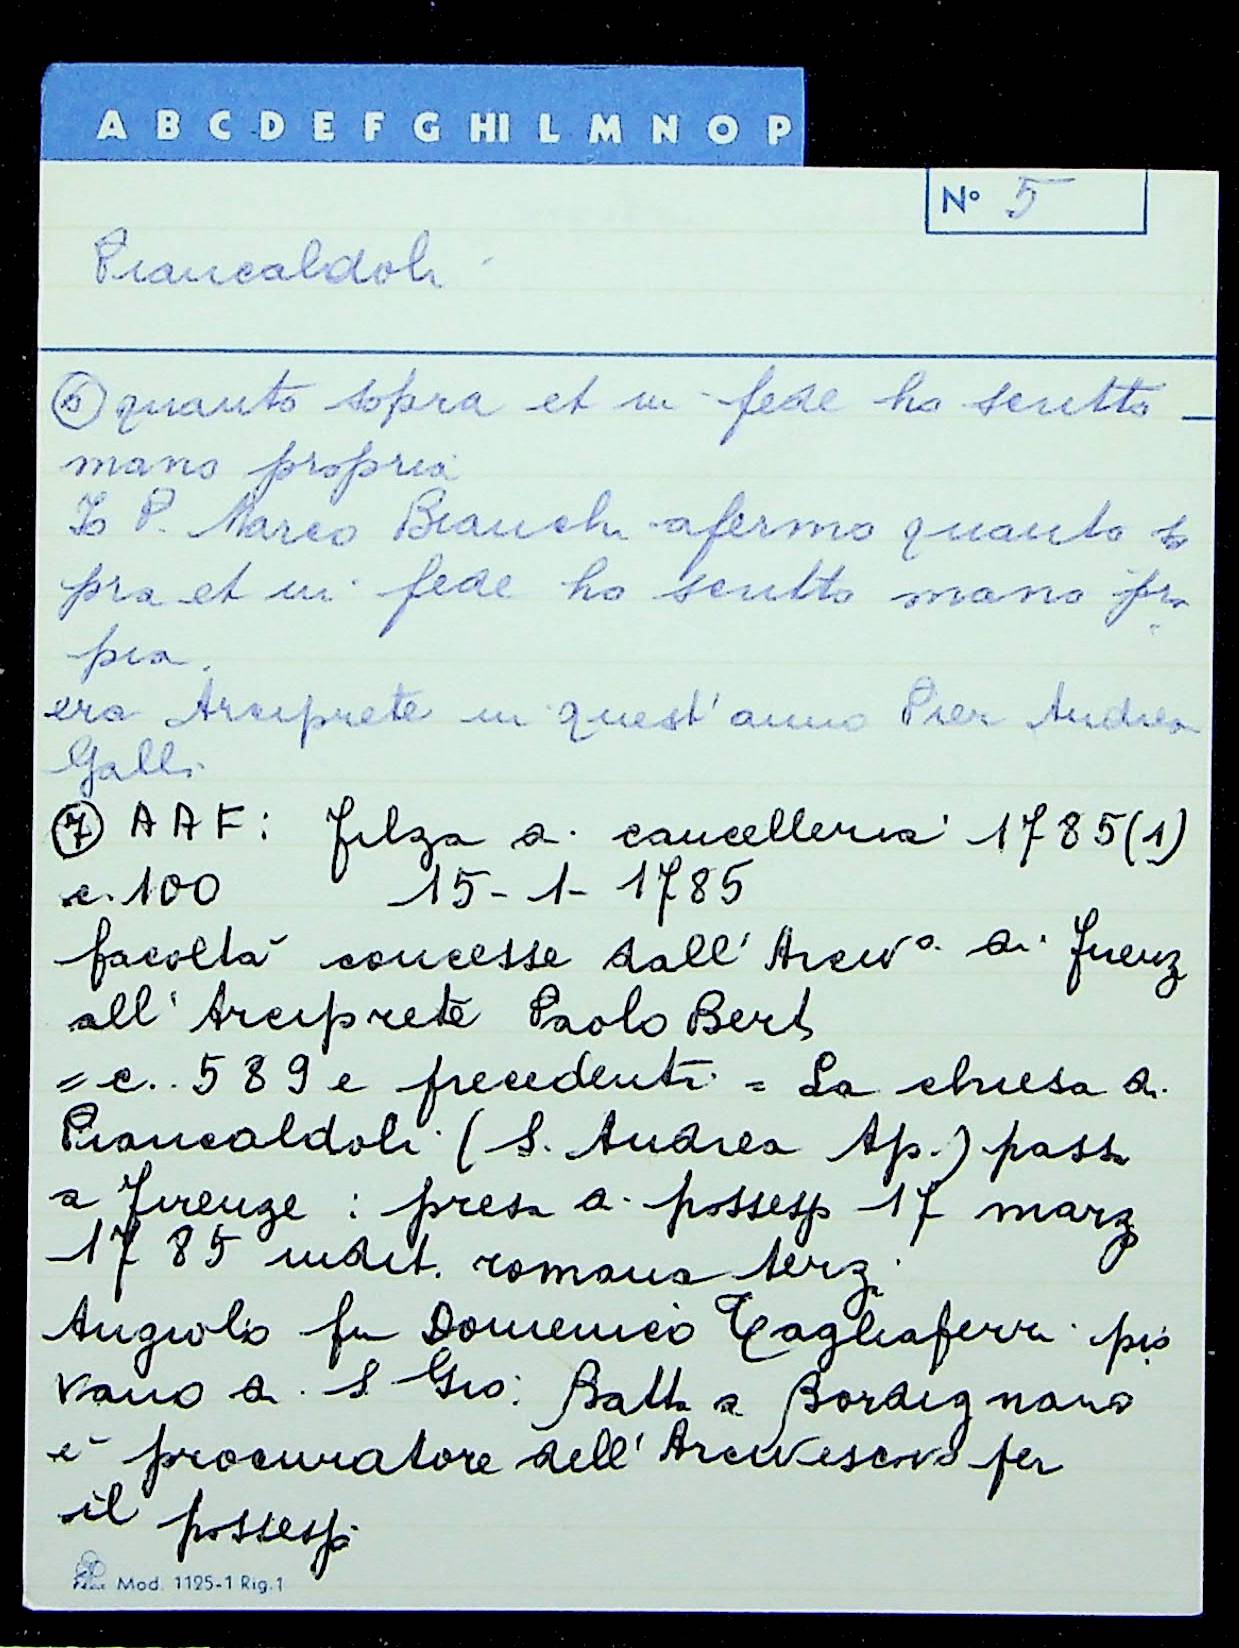 A B C D E F G HI L M N O P
N° 5
Piancaldoli
6 quanto sopra et in fede ho scritto
mano propria
Io P. Marco Bianchi afermo quanto so
pra et in fede ho scritto mano pro
pia.
era Arciprete in quest'anno Pier Andrea
Galli
7 AAF: filza di cancelleria 1785(1)
c. 100 15-1-1785
facoltà concesse dall'Arcivo. di Firenz
all'Arciprete Paolo Berti
= c.. 589 e precedenti = La chiesa di
Piancaldoli (S. Andrea Ap.) passa
a Firenze : presa di possesso 17 marzo
1785 indit. romana terza
Angiolo fu Domenico Tagliaferri pio
vano di S. Gio: Batta a Bordignano
è procuratore dell'Arcivescovo per
il possesso
Mod. 1125-1 Rig.1